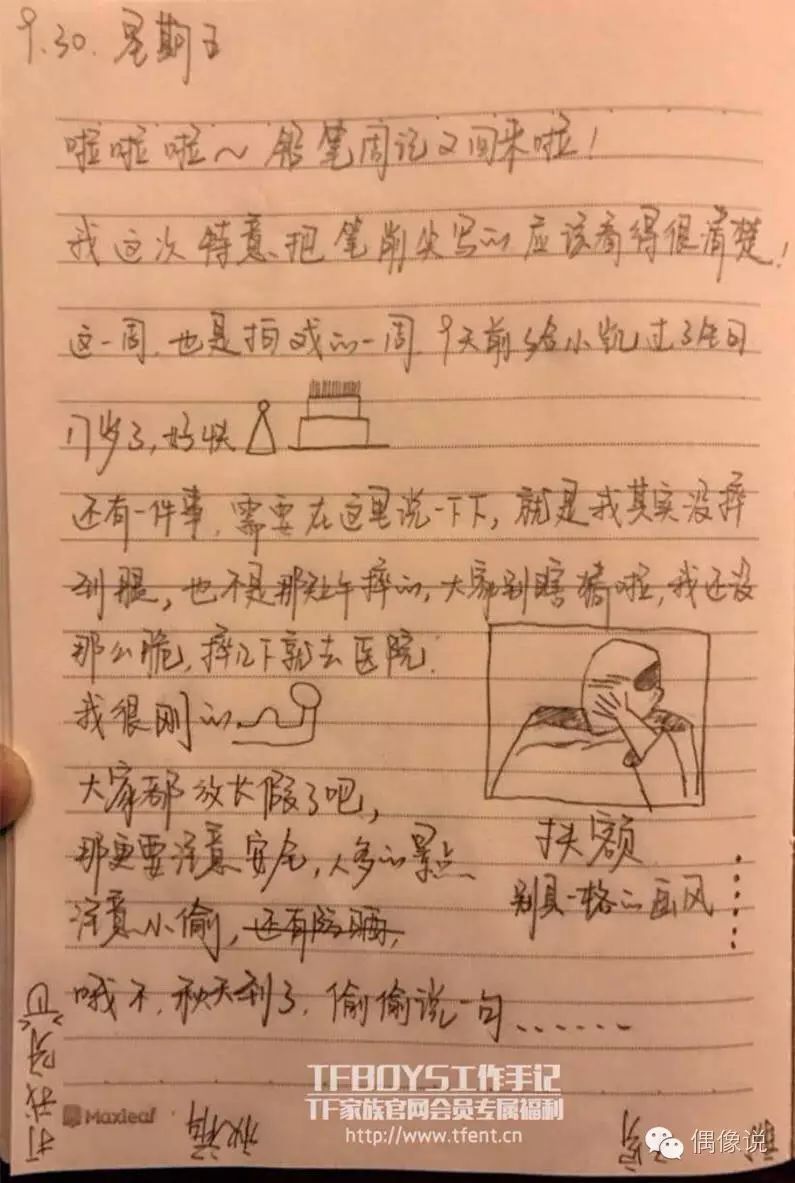 9.30. 星期五
啦啦啦~ 铅笔周记又回来啦!
我这次特意把笔削尖写的应该看得很清楚!
这一周,也是拍戏的一周.9天前给小凯过了生日
17岁了,好快
还有一件事,需要在这里说一下下,就是我其实没摔
到腿,也不是那赴午摔的,大家别瞎猜啦,我还没
那么脆,摔几下就去医院.
我很刚的
大家都放长假了吧,
那更要注意安全,人多的景点、
扶额
别具一格的画风
注意小偷,还有防晒,
哦不,秋天到了,偷偷说一句......
打我呀
秋裤
Maxleaf
TFBOYS工作手记
TF家族官网会员专属福利
http://www.tfent.cn
偶像说